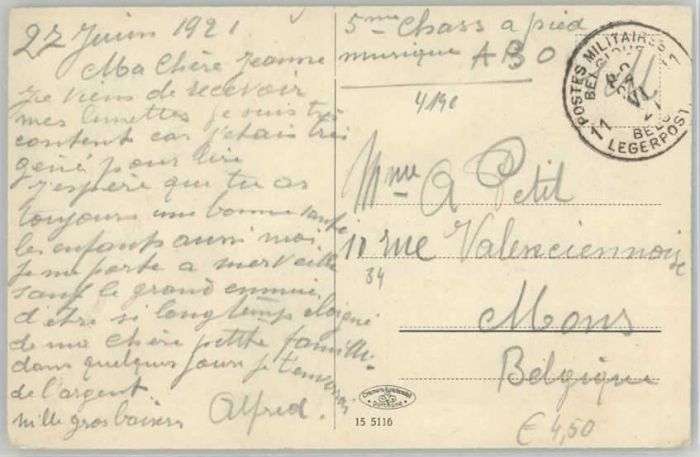 27 Juin 1921
Ma Chère Jeanne
Je viens de recevoir
mes lunettes je suis très
content car j'etais très
gêné pour lire
J'espère que tu as
toujours une bonne santé
les enfants aussi moi
je me porte a merveille
sauf le grand ennuie
d'etre si longtemp eloigné
de ma chère petite famille
dans quelques jours je t'enverrai
de l'argent
mille gros baisers Alfred
5me Chass a pied
musique A B O
4190
POSTES MILITAIRES 1
BELGIQUE
VI
11
LEGERPOST
Mme A Petit
11 rue Valenciennoise
34
Mons
Belgique
15 5116
€ 4,50